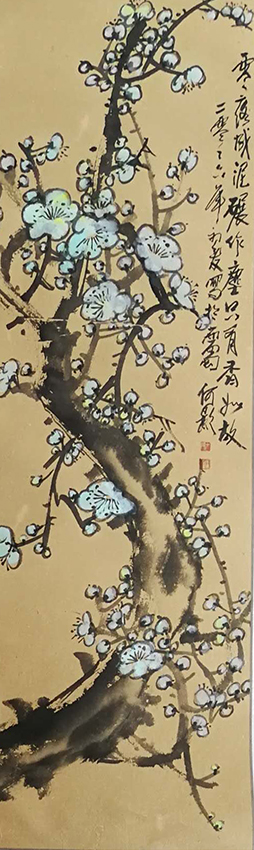 零落成泥碾作塵只有香如故
二零二六年初夏寫於西蜀何影